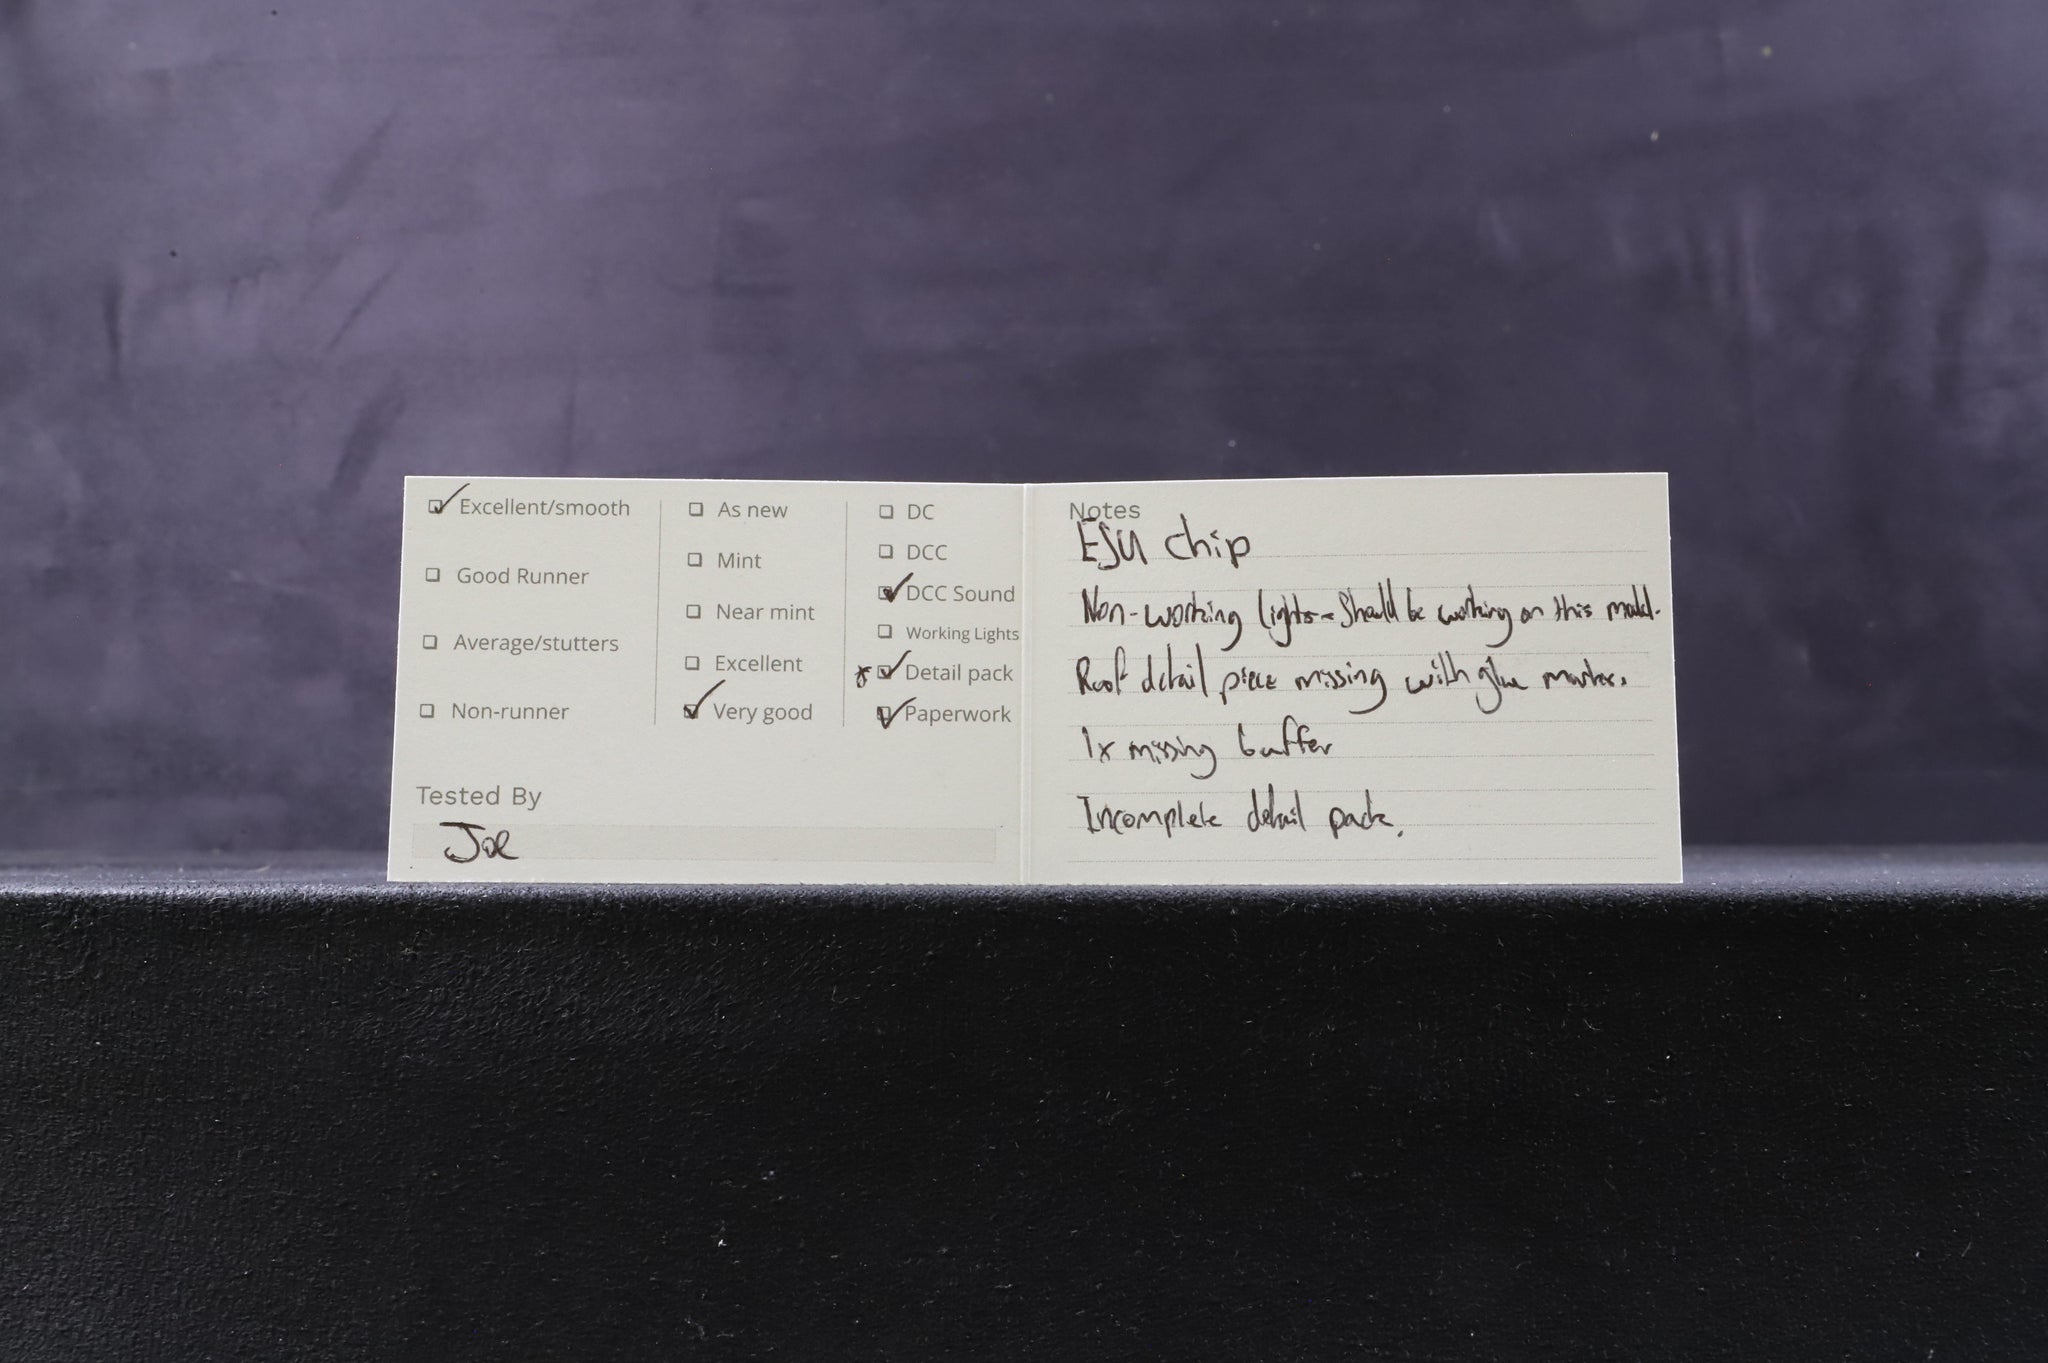 Excellent/smooth
Good Runner
Average/stutters
Non-runner
As new
Mint
Near mint
Excellent
Very good
DC
DCC
DCC Sound
Working Lights
Detail pack
Paperwork
Tested By
Joe
Notes
ESU chip
Non-working lights - Should be working on this model.
Roof detail piece missing with glue marks.
1x missing buffer
Incomplete detail pack.